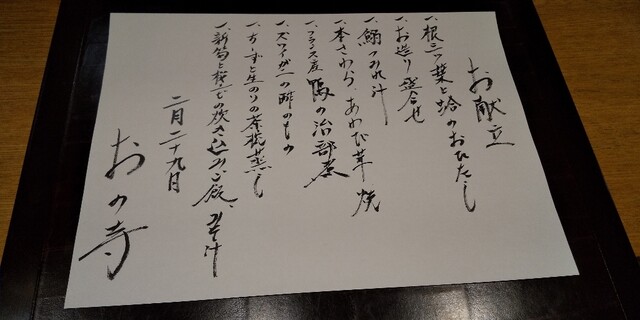 お献立
一、根三ツ葉と蛤のおひたし
一、お造り盛合せ
一、鰯つみれ汁
一、本さわら、あわび茸焼
一、フランス産 鴨の治部煮
一、ズワイガニの酢のもの
一、ちーずと生のりの茶椀蒸し
一、新筍と桜もの炊き込みご飯、みそ汁
二月二十九日
おの寺